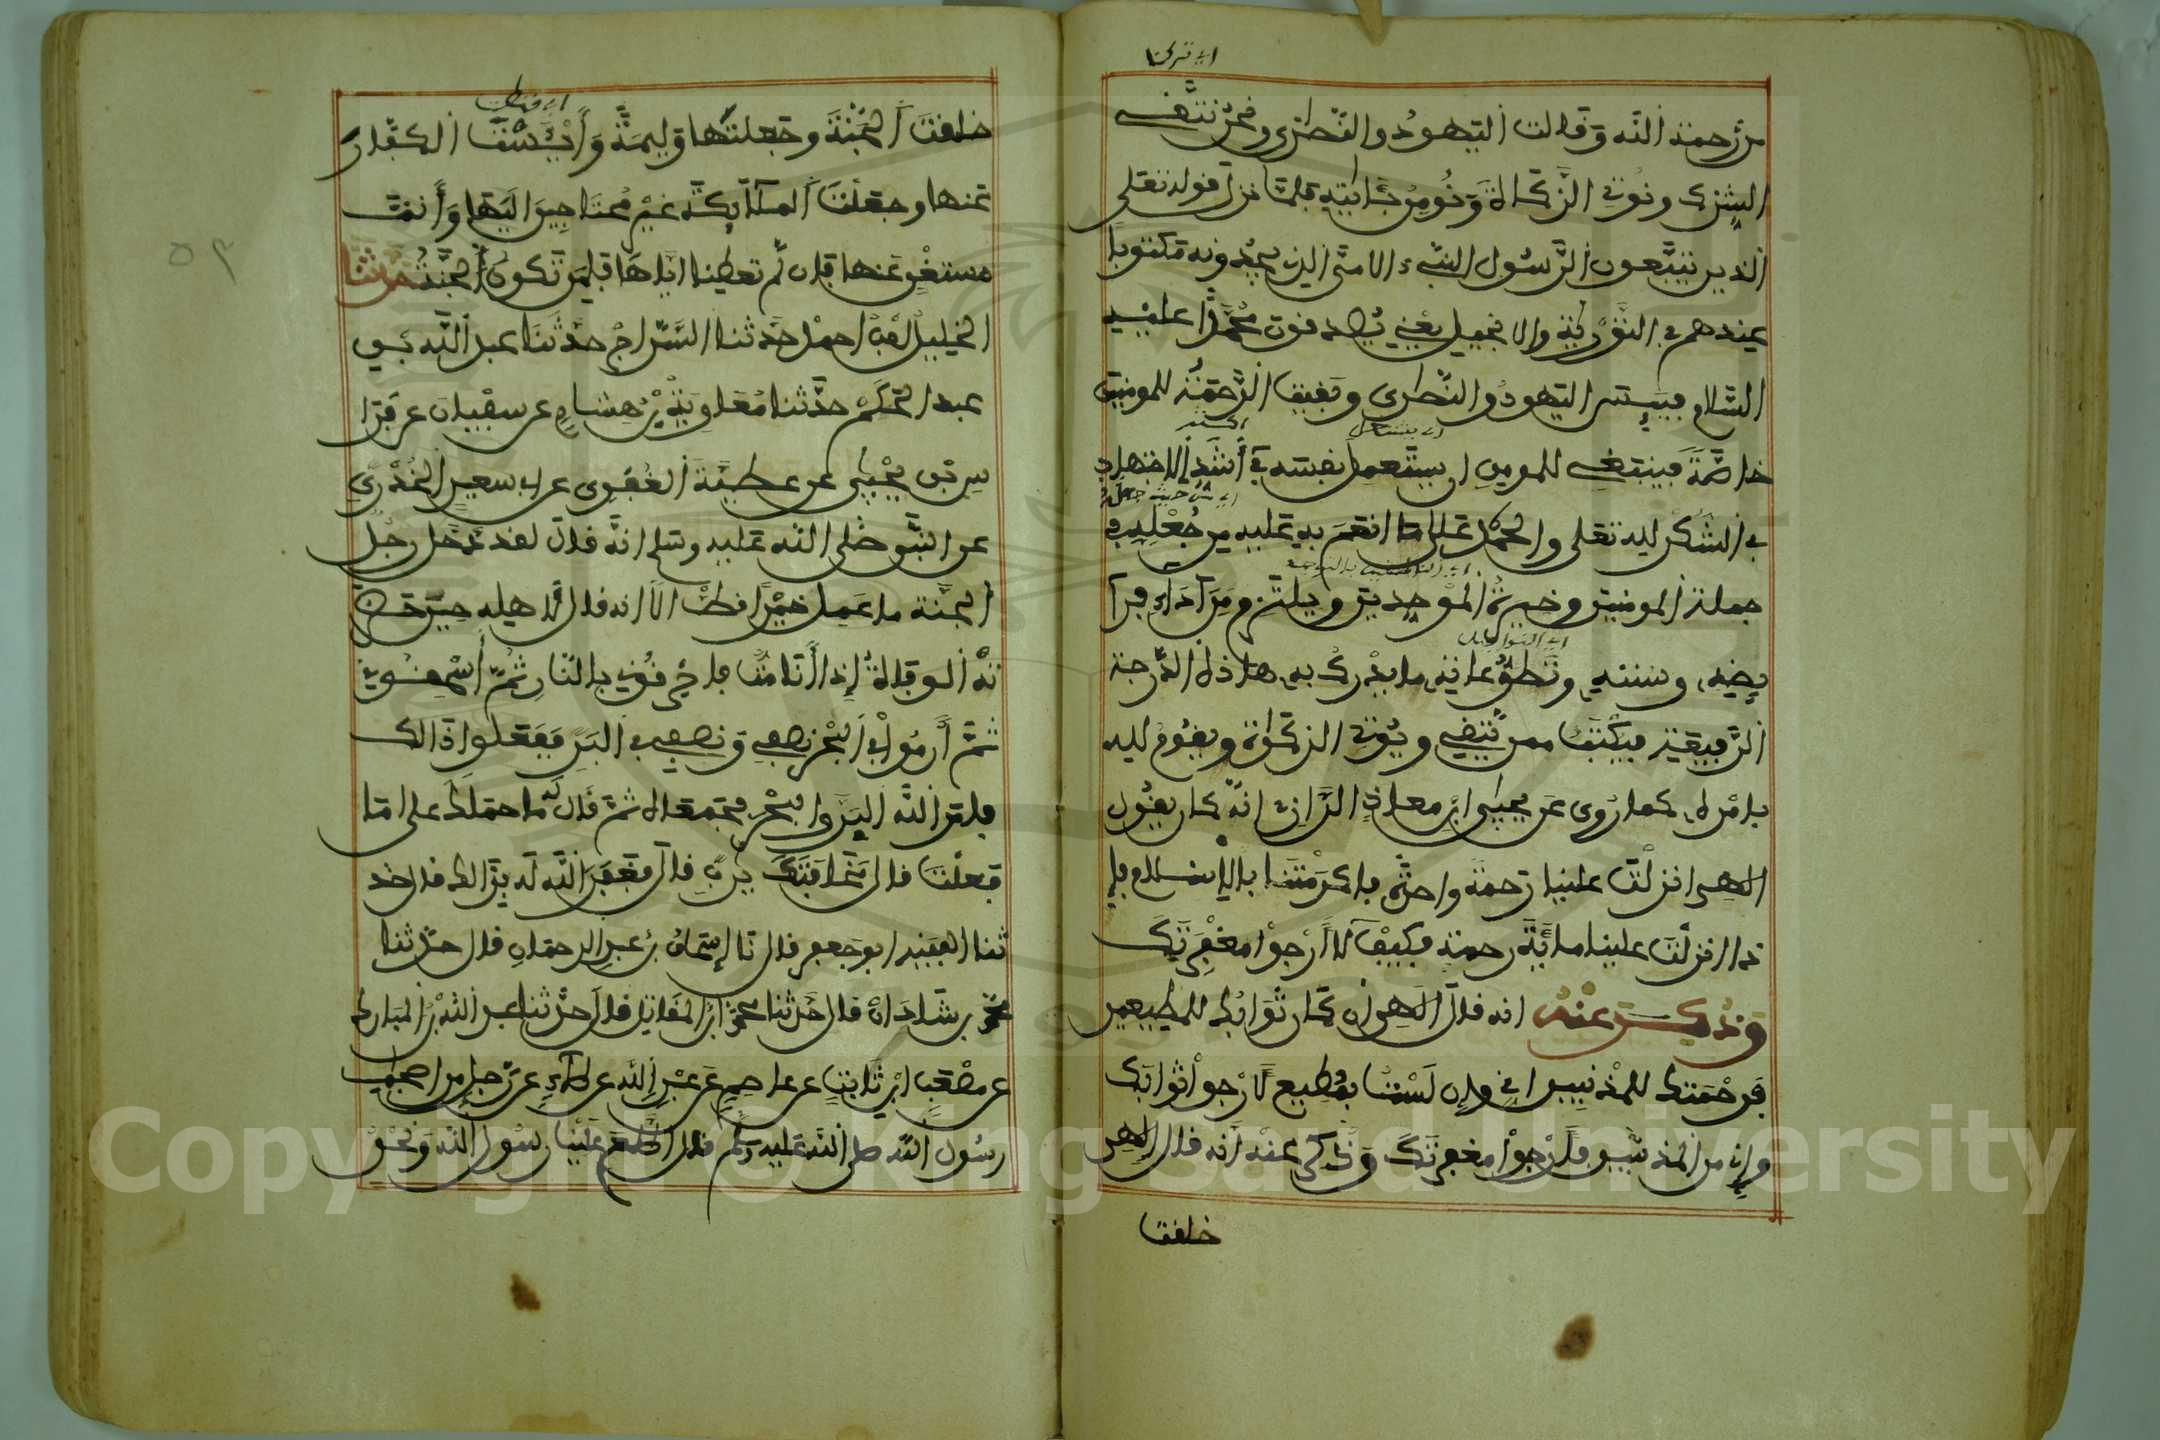 من رحمة الله وقالت اليهود والنصارى ونحن نتقي
الشرك ونوتي الزكاة ونومن بآياته فلما نزل قوله تعلى
الذين يتبعون الرسول النبيء الامي الذي يجدونه مكتوبا
عندهم في التورية والانجيل يعني يصدقون محمدا عليه
السلام فييس اليهود والنصارى وبقيت الرحمة للمومنين
خاصة فينبغي للمومن ان يستعمل نفسه في أشد الاجتهاد
في الشكر لله تعلى والحمد على ما انعم به عليه من جعله في
جملة المومنين وخيرة الموحدين و ومن آداء فرآ
يضه وسننه وتطوعاته ما يدرك به هاذه الدرجة
الرفيعة فيكتب ممن يتقي ويوتي الزكواة ويقوم لله
بامره كما روى عن يحيى ابن معاذ الرازي انه كان يقول
الاهي انزلت علينا رحمة واحدة فاكرمتنا بالاسلام فإ
ذا انزلت علينا ماية رحمة فكيف لا أرجوا مغفرتك
وذكر عنه انه قال الاهي ان كان ثوابك للمطيعين
فرحمتك للمذنبين اني وإن لست بمطيع لارجوا ثوابك
وإن من المذنبين فأرجوا مغفرتك وذكر عنه انه قال الاهي
خلقت
خلقت الجنة وجعلتها وليمة وأيست الكفار
عنها وجعلت الملآيكة غير محتاجين اليها وأنت
مستغن عنها فإن لم تعطنا اياها فلمن تكون الجنة حدثنا
الخليل ابن احمد حدثنا السراج حدثنا عبد الله بن
عبد الحكم حدثنا معاوية بن هشام عن سفيان عن فرا
س بن يحيى عن عطية العوفي عن ابي سعيد الخذري
عن النبي صلى الله عليه وسلم انه قال لقد دخل رجل
الجنة ما عمل خيرا قط الا انه قال لاهله حين حضر
ته الوفاة إذا أنا مت فاحرقوني بالنار ثم أسحقوني
ثم أرموا في البحر نصفي ونصفي في البر ففعلوا ذالك
فامر الله البر والبحر فجمعاه ثم قال له ما حملك على ما
فعلت قال مخافتك يرب قال فغفر الله له بذالك قال حد
ثنا الفقيه ابو جعفر قال نا إسحاق بن عبد الرحمان قال حدثنا
محمد بن شاذان قال حدثنا محمد ابن المقاتل قال حدثنا عبد الله بن المبارك
عن مصعب ابن ثابت عن عاصم عن عبد الله عن عطاء عن رجل من اصحاب
رسول الله صلى الله عليه وسلم قال اطلع علينا رسول الله ونحن
٥٣